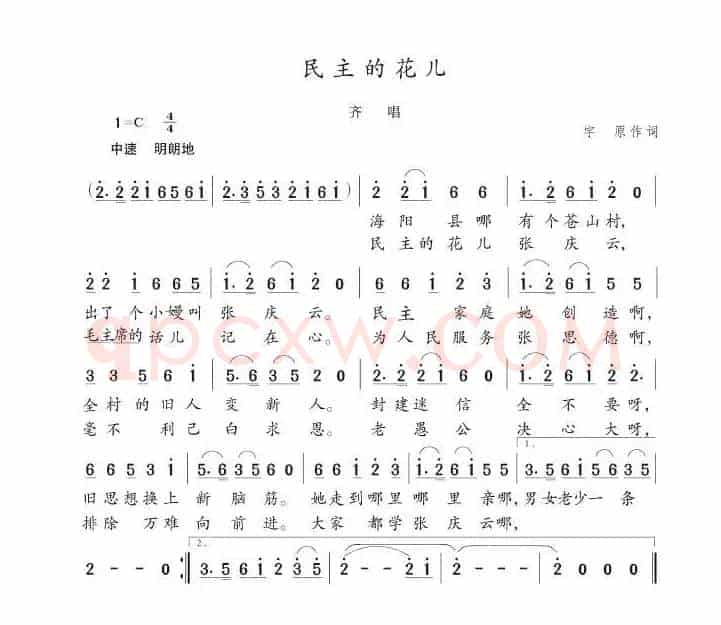 民主的花儿
齐 唱
1=C 4/4
中速 明朗地
字 原作词
(2. 2 2 1 6 5 6 1 | 2. 3 5 3 2 1 6 1) | 2 2 1 6 6 | 1. 2 6 1 2 0 |
海阳 县哪 有个苍山村,
民主的花儿 张 庆 云,
2 2 1 6 6 5 | 1. 2 6 1 2 0 | 6 6 1 2 3 | 1. 2 6 1 5 5 |
出了个小嫚叫 张 庆 云。 民主 家庭 她 创 造啊,
毛主席的话儿 记 在 心。 为人民服务 张 思 德啊,
3 3 5 6 1 | 3. 5 6 3 5 2 0 | 2. 2 2 1 6 6 | 1. 2 6 1 5 5 |
全村的旧人 变 新 人。 封建迷信 全 不 要呀,
毫不利己 白 求 恩。 老愚公 决 心 大呀,
qpcxw.com
1.
6 6 5 5 3 1 | 5. 6 3 5 5 0 | 6 6 5 3 2 3 3 | 1. 2 6 1 5 5 | 3. 5 6 1 5 6 3 5
旧思想换上 新 脑 筋。 她走到哪里 哪 里 亲哪, 男女老少一 条
排除 万难 向 前 进。 大家 都学 张 庆 云哪,
2.
2 - - 0 :| 3. 5 6 1 2 3 5 | 2 - 2 1 | 2 - - - | 2 0 0 0 |